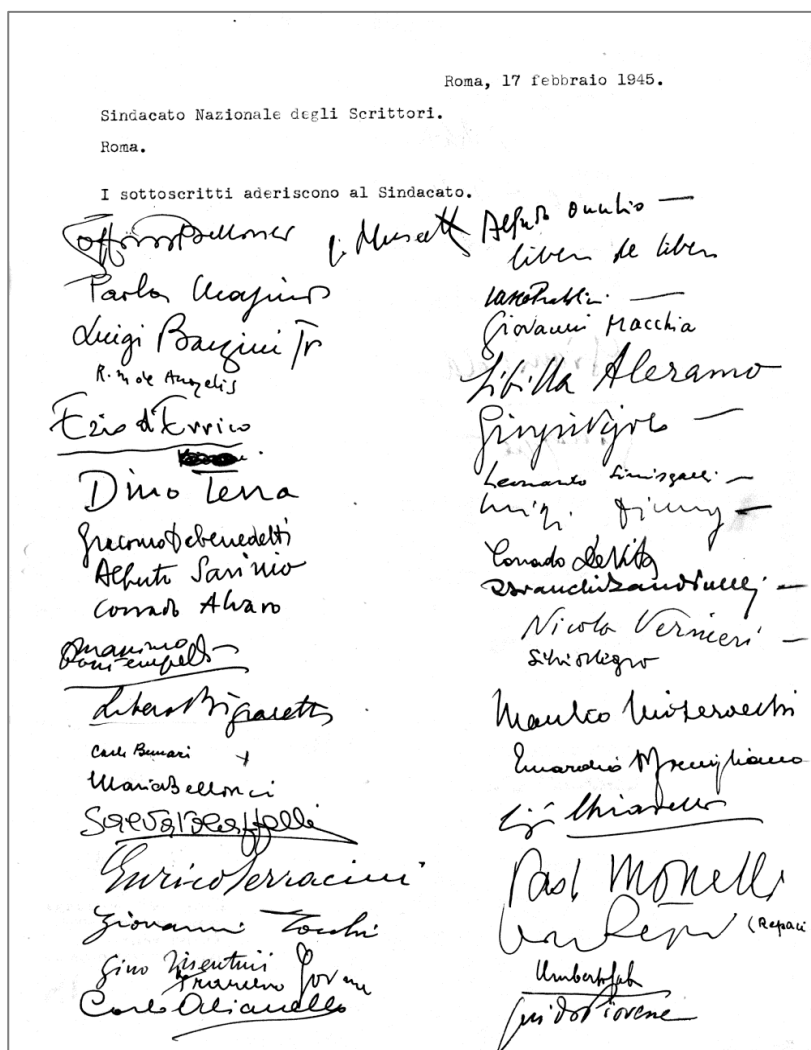 Roma, 17 febbraio 1945.
Sindacato Nazionale degli Scrittori.
Roma.
I sottoscritti aderiscono al Sindacato.
Paola Masino
Luigi Barzini Jr
R. M. de Angelis
Ezio d'Errico
Dino Terra
Giacomo Debenedetti
Alberto Savinio
Corrado Alvaro
Massimo Bontempelli
Libero Bigiaretti
Carlo Bernari
Maria Bellonci
Enrico Terracini
Giovanni
Gino Visentini
Francesco Jovine
Carlo Alianello
Libero de Libero
Vasco Pratolini
Giovanni Macchia
Sibilla Aleramo
Giorgio Vigolo
Leonardo Sinisgalli
Luigi
Corrado
R. Bianchi Bandinelli
Nicola Vernieri
Silvio Negro
Eucardio Momigliano
Luigi Chiarelli
Paolo Monelli
(Repaci
Umberto Saba
Guido Piovene